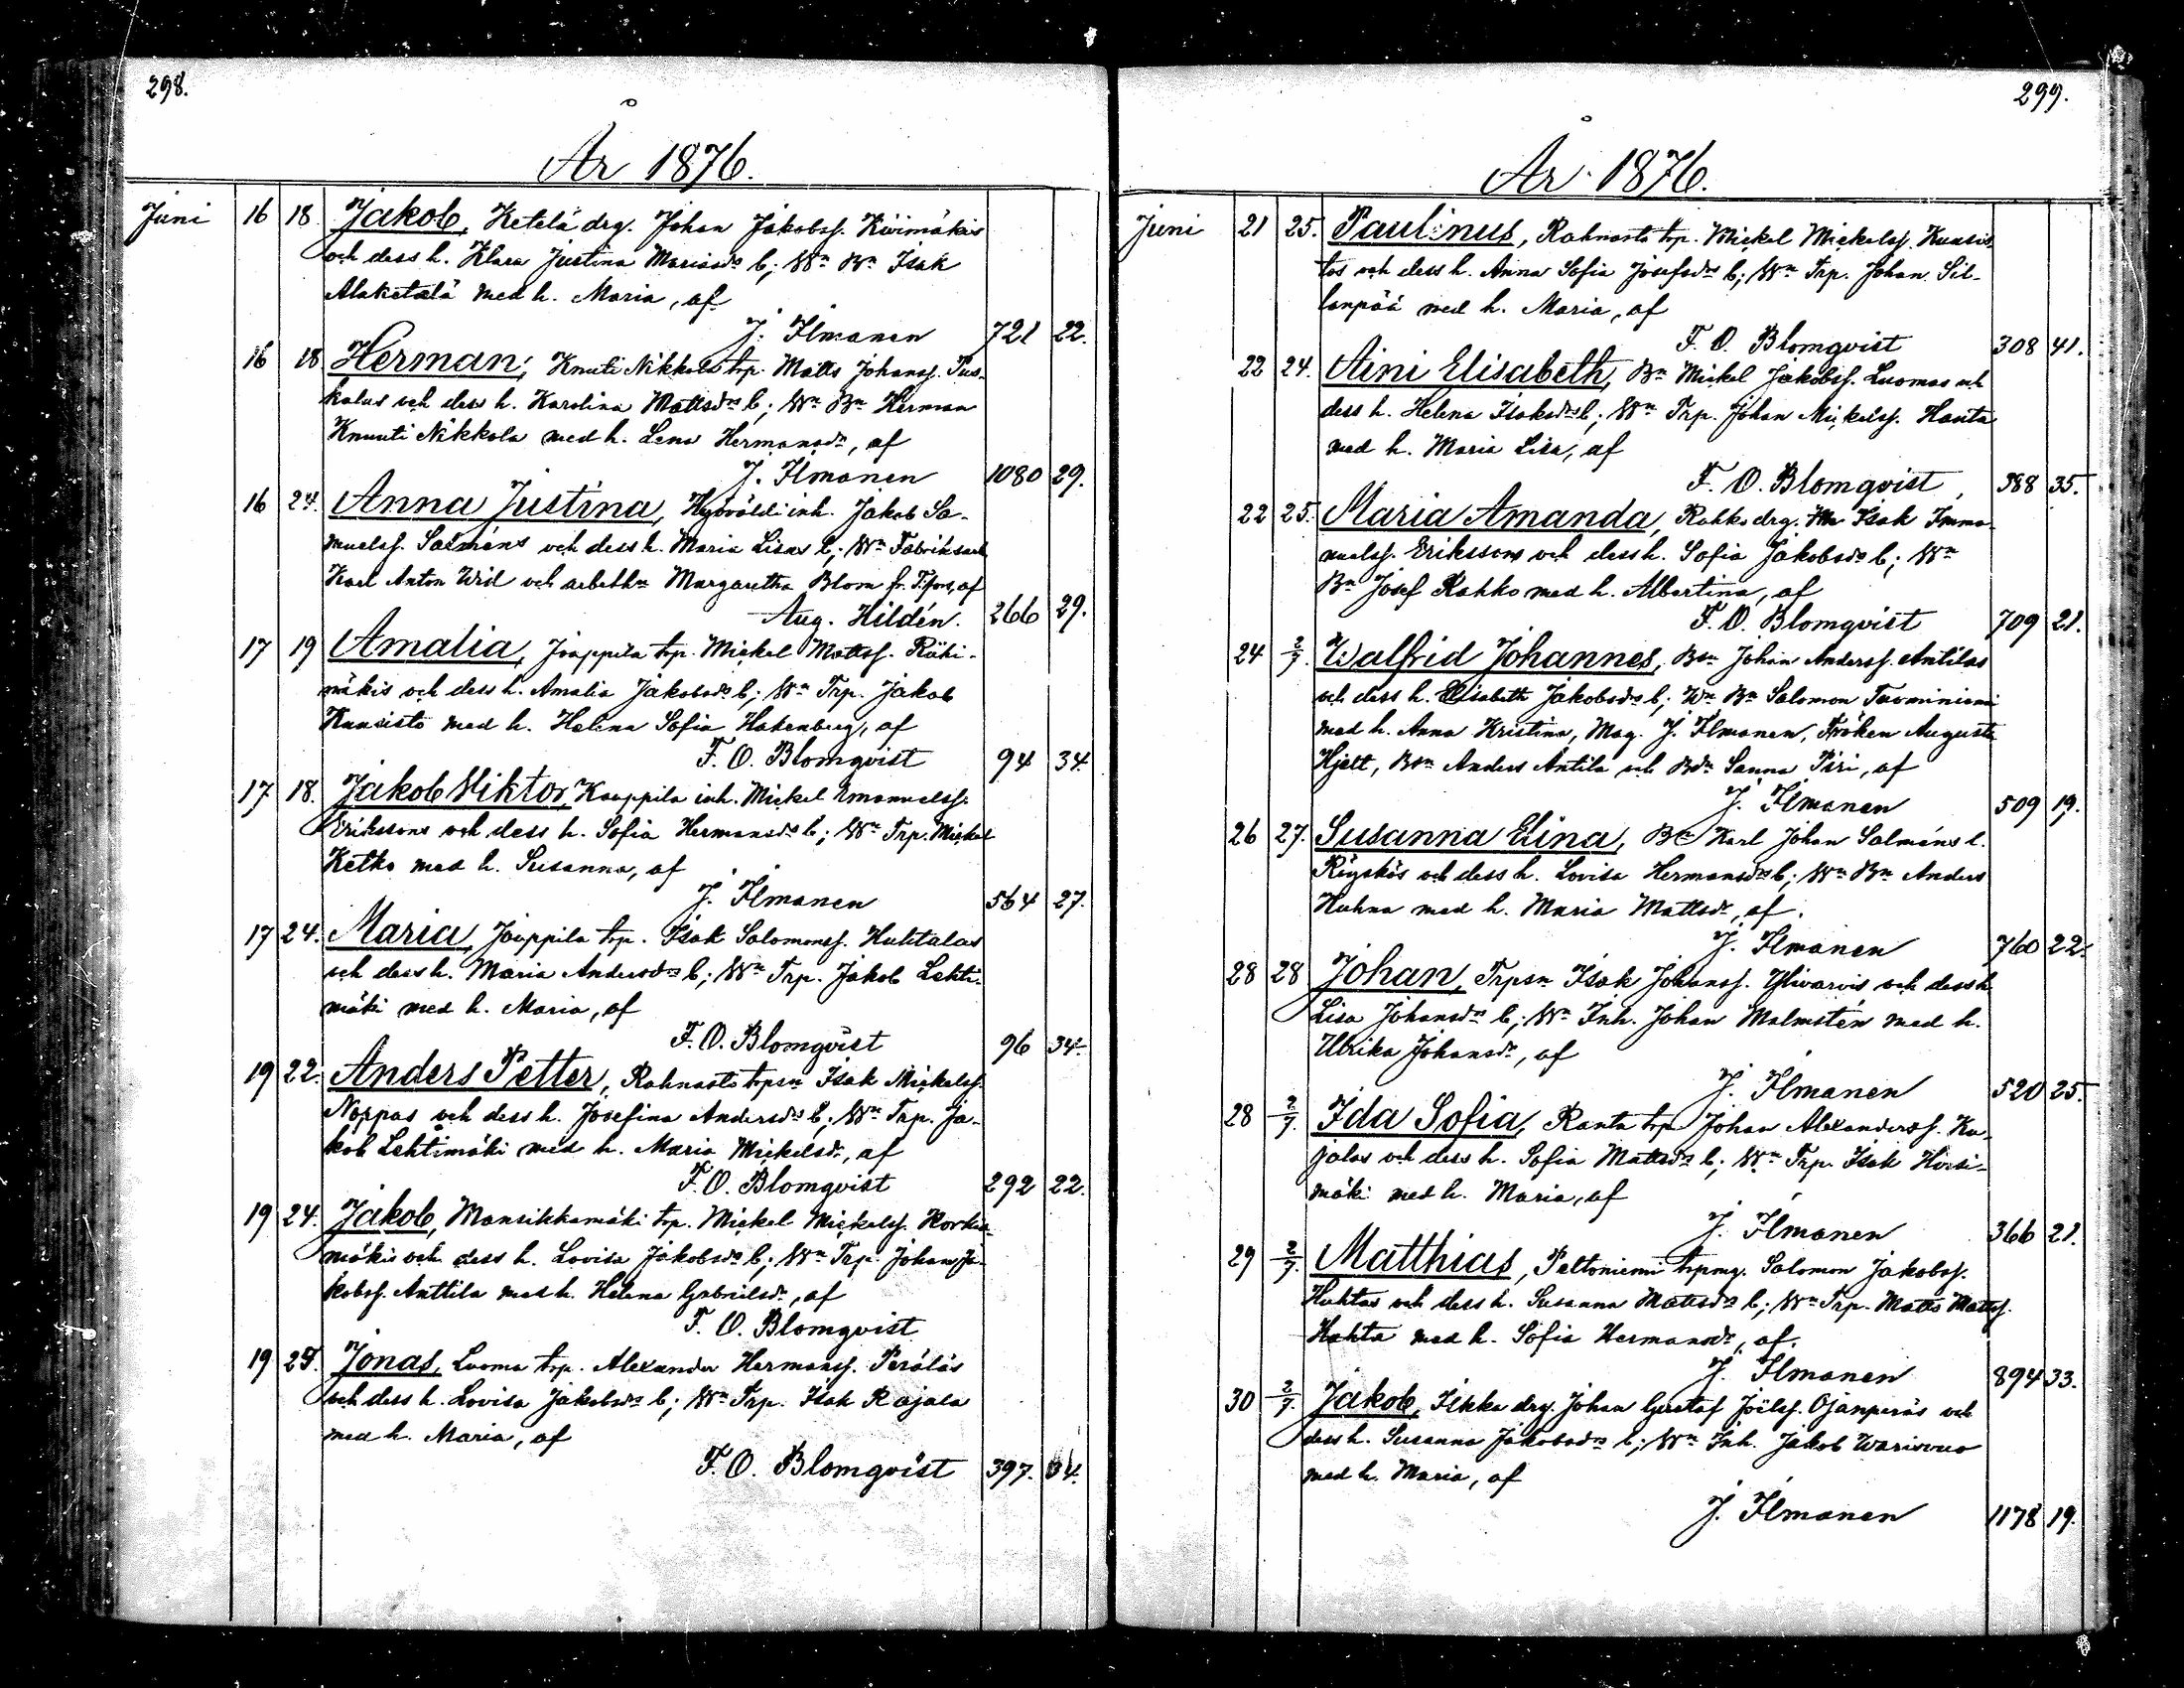 298.
År 1876.
Juni 16 18. Jakob, Ketelä drg. Johan Jakobss. Kivimäkis
och dess h. Klara Justina Mariasdrs b; Wn Bn Isak
Alaketelä med h. Maria, af
J. Ilmanen 721 22.
16 18 Herman, Knuti Nikkola trp. Matts Johanss. Pus-
kalas och dess h. Karolina Mattsdrs b; Wn Bn Herman
Knuuti Nikkola med h. Lena Hermansdr, af
J. Ilmanen 1080 29.
16 24. Anna Justina, inh. Jakob Sa-
muelss. Salméns och dess h. Maria Lisas b; Wn Fabriksarb.
Karl Anton Wid och Margaretha Blom fr. T.fors, af
Aug. Hildén. 266 29.
17 19 Amalia, Jaappila trp. Mickel Mattss. Riihi-
mäkis och dess h. Amalia Jakobsdrs b; Wn Trp. Jakob
Kuusisto med h. Helena Sofia Hakenberg, af
F. O. Blomqvist 94 34.
17 18. Jakob Viktor, Kaappila inh. Mickel Emanuelss.
Erikssons och dess h. Sofia Hermansdrs b; Wn Trp. Mickel
Ketko med h. Susanna, af
J. Ilmanen 564 27.
17 24. Maria, Jaappila trp. Isak Salomonss. Huhtalas
och dess h. Maria Andersdrs b; Wn Trp. Jakob Lehti-
mäki med h. Maria, af
F. O. Blomqvist 96 34.
19 22. Anders Petter, Rahnasto trpsn Isak Mickelss.
Norpas och dess h. Josefina Andersdrs b; Wn Trp. Ja-
kob Lehtimäki med h. Maria Mickelsdr, af
F. O. Blomqvist 292 22.
19 24. Jakob, Mansikkamäki trp. Mickel Mickelss. Korkia-
mäkis och dess h. Lovisa Jakobsdrs b; Wn Trp. Johan Ja-
kobss. Anttila med h. Helena Gabrielsdr, af
F. O. Blomqvist
19 25. Jonas, Luoma trp. Alexander Hermanss. Peräläs
och dess h. Lovisa Jakobsdrs b; Wn Trp. Isak Rajala
med h. Maria, af
F. O. Blomqvist 397. 34.
299.
År 1876.
Juni 21 25. Paulinus, Rahnasto trp. Mickel Mickelss. Kuusis-
tos och dess h. Anna Sofia Josefsdrs b; Wn Trp. Johan Sil-
lanpää med h. Maria, af
F. O. Blomqvist 308 41.
22 24. Aini Elisabeth, Bn Mickel Jakobss. Luomas och
dess h. Helena Isaksdrs b; Wn Trp. Johan Mickelss. Hauta
med h. Maria Lisa, af
F. O. Blomqvist 388 35.
22 25. Maria Amanda, Rahko drg. Isak Imma-
nuelss. Erikssons och dess h. Sofia Jakobsdrs b; Wn
Bn Josef Rahko med h. Albertina, af
F. O. Blomqvist 709 21.
24 2/7. Walfrid Johannes, Bsn Johan Anderss. Antilas
och dess h. Elisabeth Jakobsdrs b; Wn Bn Salomon Turminiemi
med h. Anna Kristina, Mag. J. Ilmanen, Fröken Augusta
Hjelt, Bsn Anders Antila och Bdr Sanna Piri, af
J. Ilmanen 509 19.
26 27. Susanna Elina, Karl Johan Salméns l.
och dess h. Lovisa Hermansdrs b; Wn Bn Anders
Huhna med h. Maria Mattsdr, af.
J. Ilmanen 760 22.
28 28 Johan, Trpsn Isak Johanss. Ylivarvis och dess h
Lisa Johansdrs b; Wn Inh. Johan Malmstén med h.
Ulrika Johansdr, af
J. Ilmanen 520 25.
28 2/7. Ida Sofia, Ranta trp Johan Alexanderss. Ku-
jalas och dess h. Sofia Mattsdrs b; Wn Trp. Isak Hirsi-
mäki med h. Maria, af
J. Ilmanen 366 21.
29 2/7. Matthias, Peltoniemi trpmg. Salomon Jakobss.
Huhtas och dess h. Susanna Mattsdrs b; Wn Trp. Matts Mattss.
Hahta med h. Sofia Hermansdr, af.
J. Ilmanen 894 33.
30 2/7. Jakob, Ikka drg. Johan Gustaf Joëlss. Ojanperäs och
dess h. Susanna Jakobsdrs b; Wn Inh. Jakob Warisvuo
med h. Maria, af
J. Ilmanen 1178 19.